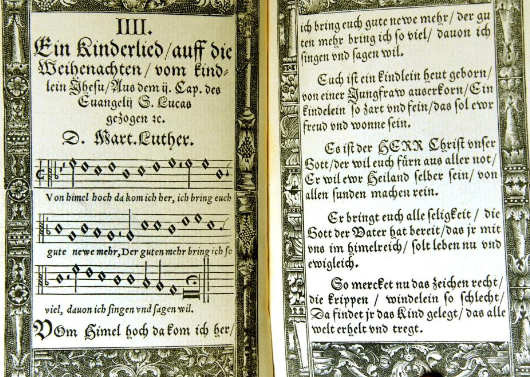 IIII.
Ein Kinderlied/auff die
Weihenachten/ vom kind-
lein Jhesu/Aus dem ij. Cap. des
Euangelij S. Lucas
gezogen ꝛc.
D. Mart. Luther.
Von himel hoch da kom ich her, ich bring euch
gute newe mehr, Der guten mehr bring ich so
viel, dauon ich singen vnd sagen wil.
VOm Himel hoch da kom ich her/
ich bring euch gute newe mehr/ der gu
ten mehr bring ich so viel/ dauon ich
singen vnd sagen wil.
Euch ist ein kindlein heut geborn/
von einer Jungfraw auserkorn/ Ein
kindelein so zart vnd fein/das sol ewr
freud vnd wonne sein.
Es ist der HERR Christ vnser
Gott/der wil euch fürn aus aller not/
Er wil ewr Heiland selber sein/ von
allen sunden machen rein.
Er bringt euch alle seligkeit/ die
Gott der Vater hat bereit/das jr mit
vns im himelreich/ solt leben nu vnd
ewigleich.
So mercket nu das zeichen recht/
die krippen/ windelein so schlecht/
Da findet jr das Kind gelegt/das alle
welt erhelt vnd tregt.